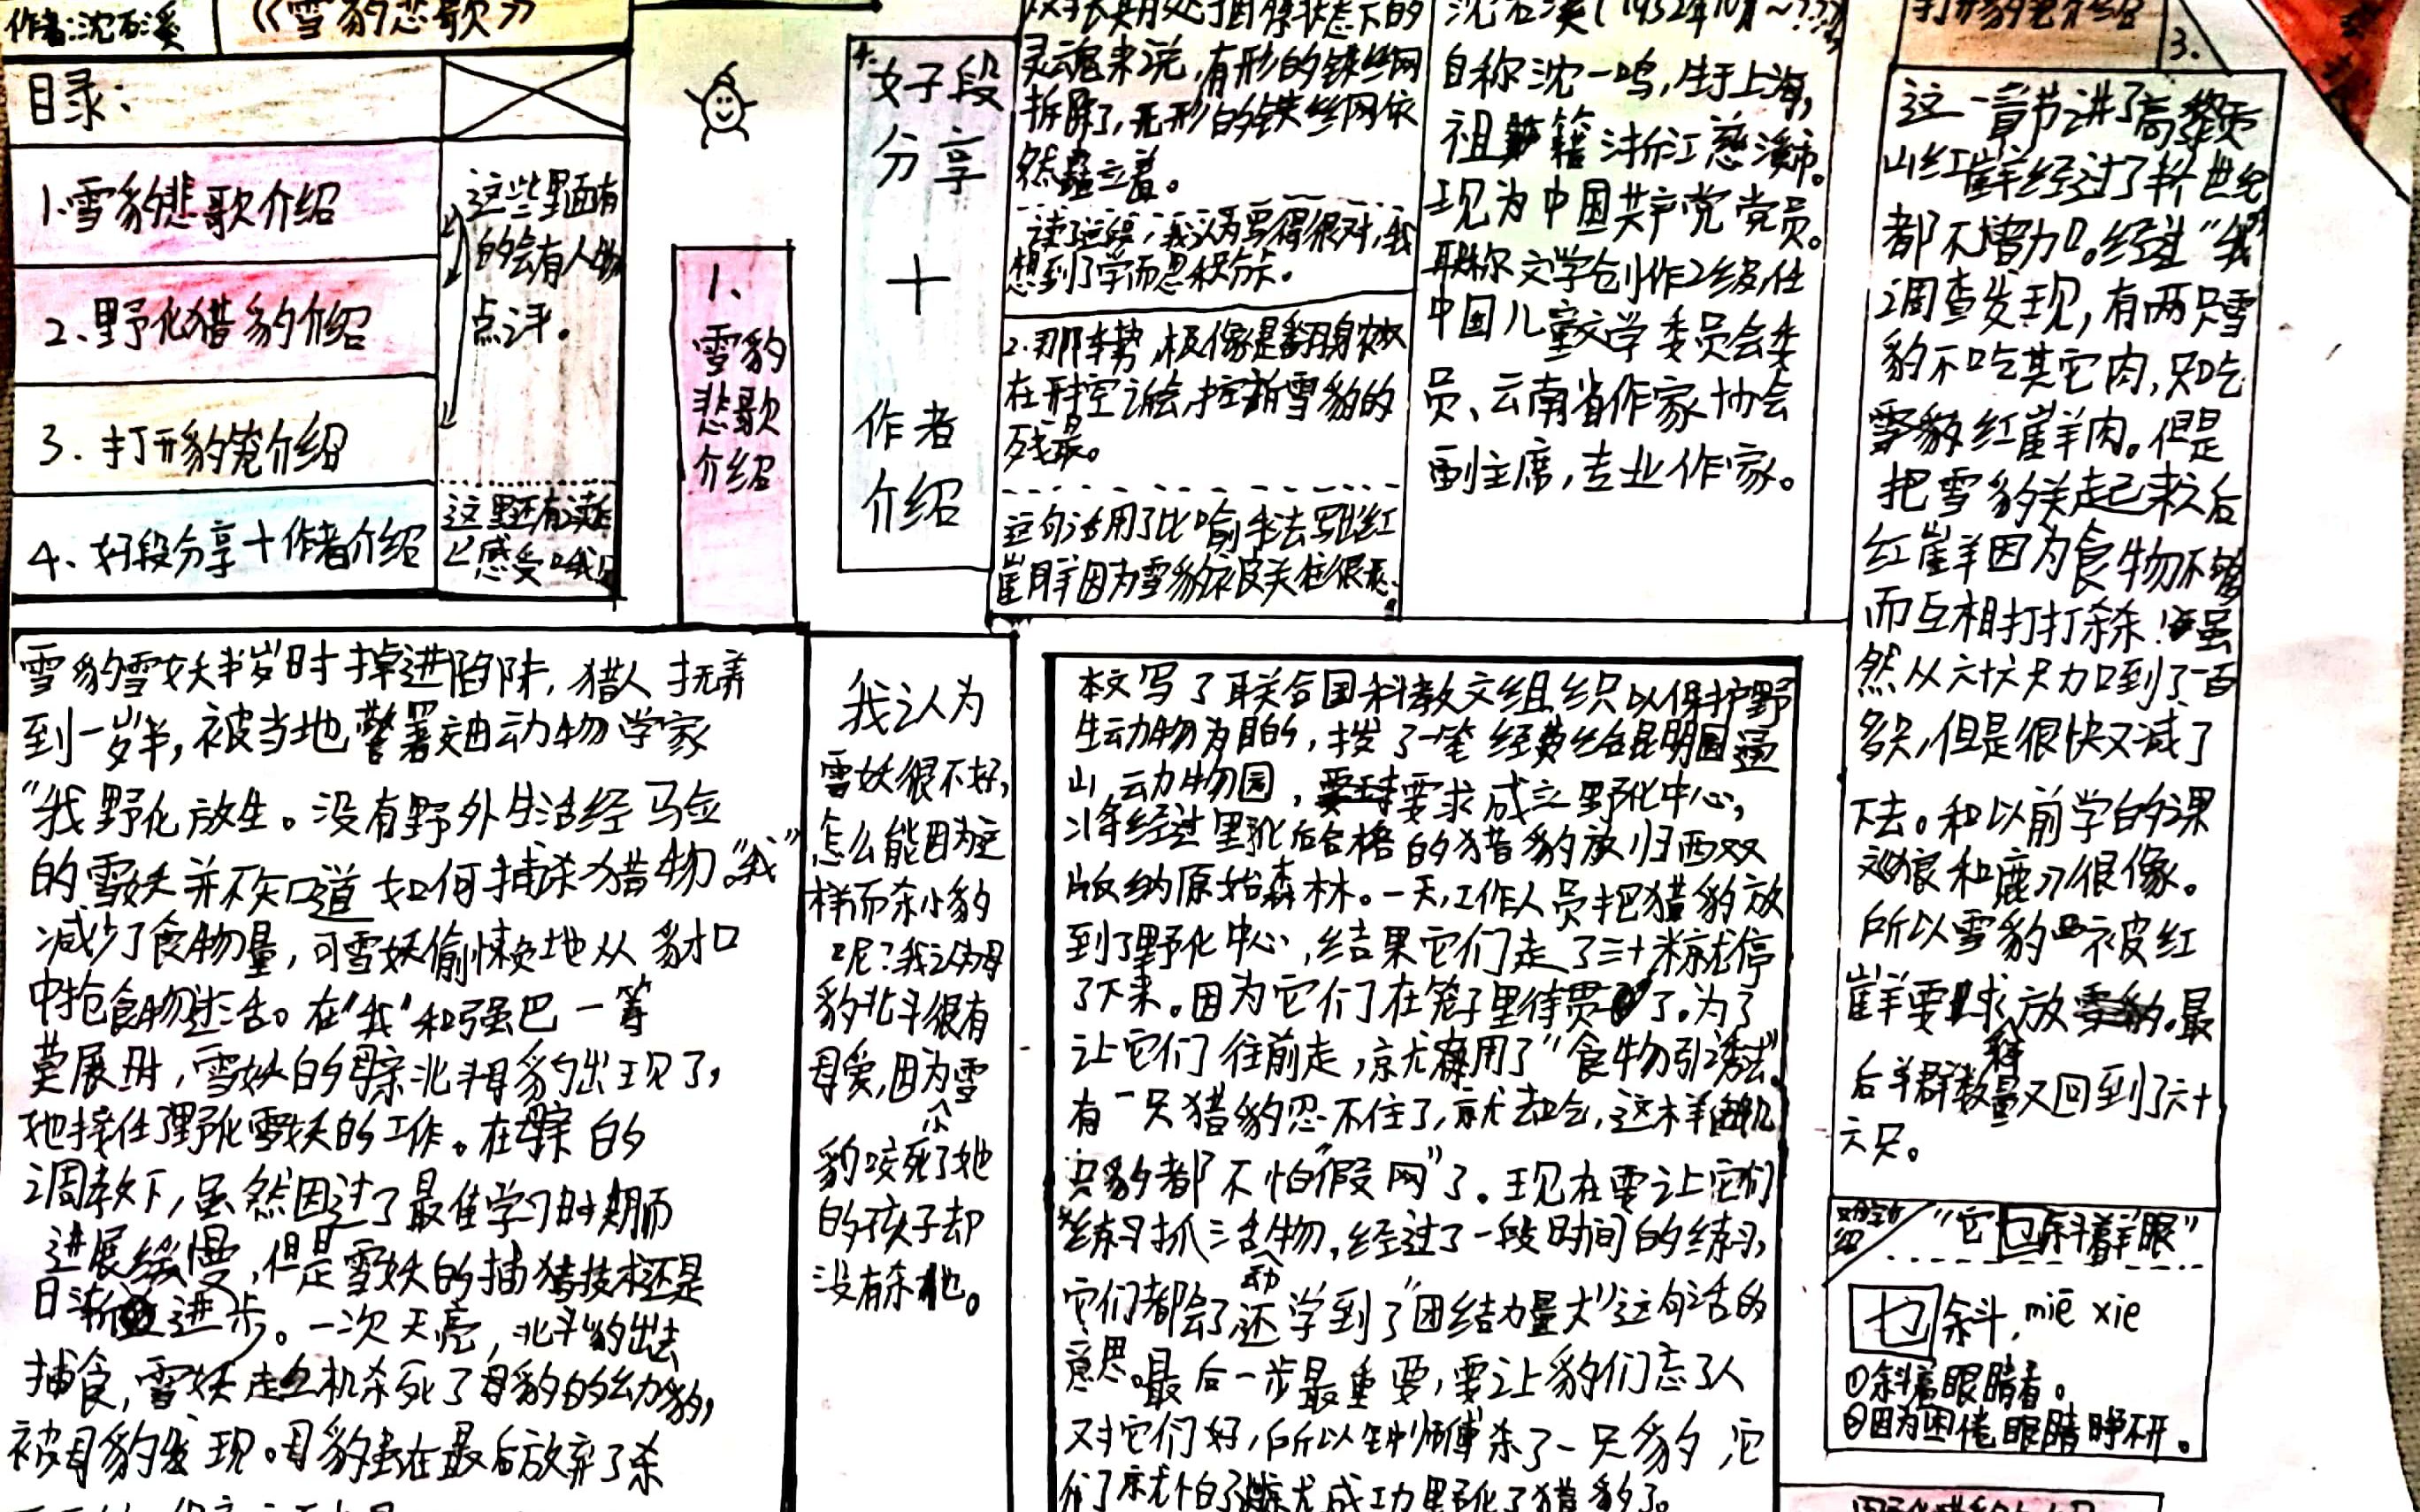 作者:沈石溪
《雪豹悲歌》
目录:
1.雪豹悲歌介绍
2.野化猎豹介绍
3.打开豹笼介绍
4.好段分享+作者介绍
这些里面有
的会有人物
点评。
这里还有读后
感受哦
1、
雪豹
悲歌
介绍
4.好段
分享
+
作者
介绍
灵魂来说,有形的铁丝网
拆除了,无形的铁丝网依
然矗立着。
读了这段,我认为写得很对,我
想到了学而思积分卡。
2.那阵势,极像是翻身农奴
在开控诉会,控诉雪豹的
残暴。
这句话用了比喻手法写出红
崖羊因为雪豹被关住很
沈石溪(1952年10月~???)
自称沈一鸣,生于上海,
祖籍浙江慈溪市。
现为中国共产党党员。
职称文学创作2级任
中国儿童文学委员会委
员、云南省作家协会
副主席,专业作家。
打开豹笼介绍
3.
这一章节讲了高黎贡
山红崖羊经过了半个世纪
都不增加。经过“我”
调查发现,有两只雪
豹不吃其它肉,只吃
红崖羊肉。但是
把雪豹关起来之后
红崖羊因为食物不够
而互相打打杀杀!虽
然从六十六只加到了一百
多只,但是很快又减了
下去。和以前学的课
文狼和鹿很像。
所以雪豹被红
崖羊要求释放。最
后羊群数量又回到了六十
六只。
“它乜斜着羊眼”
乜斜,miē xie
①斜着眼睛看。
②因为困倦眼睛睁不开。
雪豹雪妖半岁时掉进陷阱,猎人抚养
到一岁半,被当地警署交由动物学家
“我野化放生。没有野外生活经验
的雪妖并不知道如何捕杀猎物。“我”
减少了食物量,可雪妖偷懒地从豺口
中抢食物过活。在“我”和强巴一筹
莫展时,雪妖的母亲北斗母豹出现了,
她接任了野化雪妖的工作。在母亲的
调教下,虽然因过了最佳学习时期而
进展缓慢,但是雪妖的捕猎技术还是
日渐进步。一次天亮,北斗豹出去
捕食,雪妖趁机杀死了母豹的幼豹,
被母豹发现。母豹虽在最后放弃了杀
我认为
雪妖很不好,
怎么能因为这
样而杀小豹
呢?我认为母
豹北斗很有
母爱,因为雪
豹咬死了她
的孩子却
没有杀他。
本文写了联合国科教文组织以保护野
生动物为目的,拨了一笔经费给昆明圆通
山动物园,要求成立野化中心,
将经过野化后合格的猎豹放归西双
版纳原始森林。一天,工作人员把猎豹放
到了野化中心,结果它们走了三十米就停
了下来。因为它们在笼子里待惯了。为了
让它们往前走,就用了“食物引诱法”。
有一只猎豹忍不住了,就去吃,这样
只豹都不怕“假网”了。现在要让它们
练习抓活动物,经过了一段时间的练习,
它们都会了,还学到了“团结力量大”这句话的
意思。最后一步最重要,要让豹们忘了人
对它们好,所以师傅杀了一只豹,它
们就怕了,就成功野化了猎豹了。